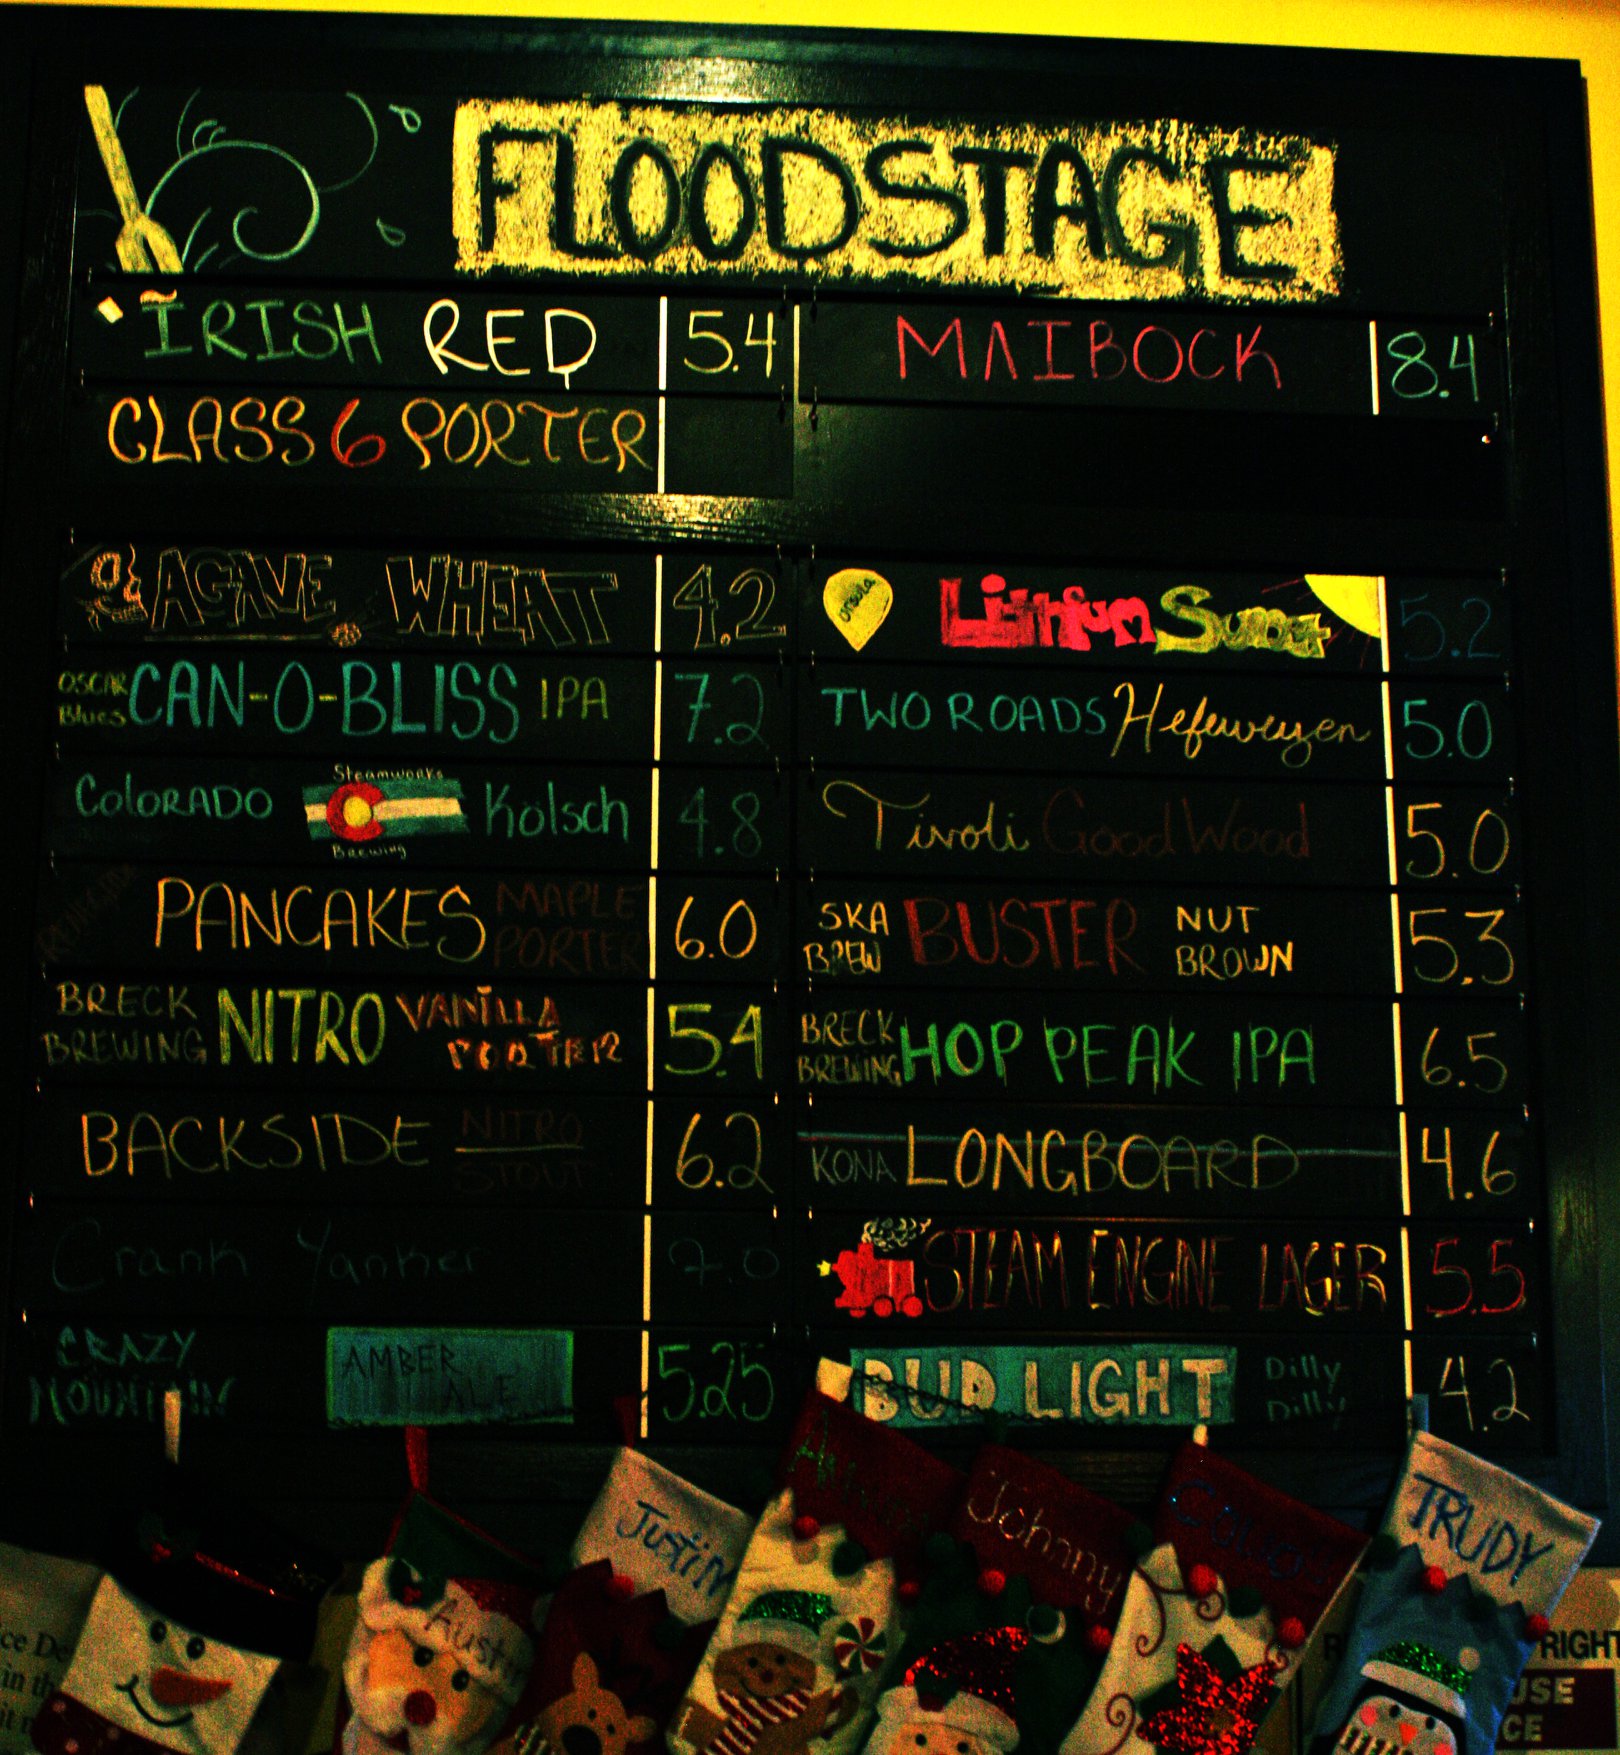 FLOODSTAGE
IRISH RED 5.4
CLASS 6 PORTER
MAIBOCK 8.4
AGAVE WHEAT 4.2
OSCAR Blues CAN-O-BLISS IPA 7.2
COLORADO Steamworks Brewing Kölsch 4.8
PANCAKES MAPLE PORTER 6.0
BRECK BREWING NITRO VANILLA PORTER 5.4
BACKSIDE NITRO STOUT 6.2
Crank Yanker 7.0
CRAZY MOUNTAIN AMBER ALE 5.25
Lithium Sunset 5.2
TWO ROADS Hefeweyzen 5.0
Tivoli Good Wood 5.0
SKA BREW BUSTER NUT BROWN 5.3
BRECK BREWING HOP PEAK IPA 6.5
KONA LONGBOARD 4.6
STEAM ENGINE LAGER 5.5
BUD LIGHT Dilly Dilly 4.2
Austin
Justin
Johnny
TRUDY
in th
RIGHT
USE
CE